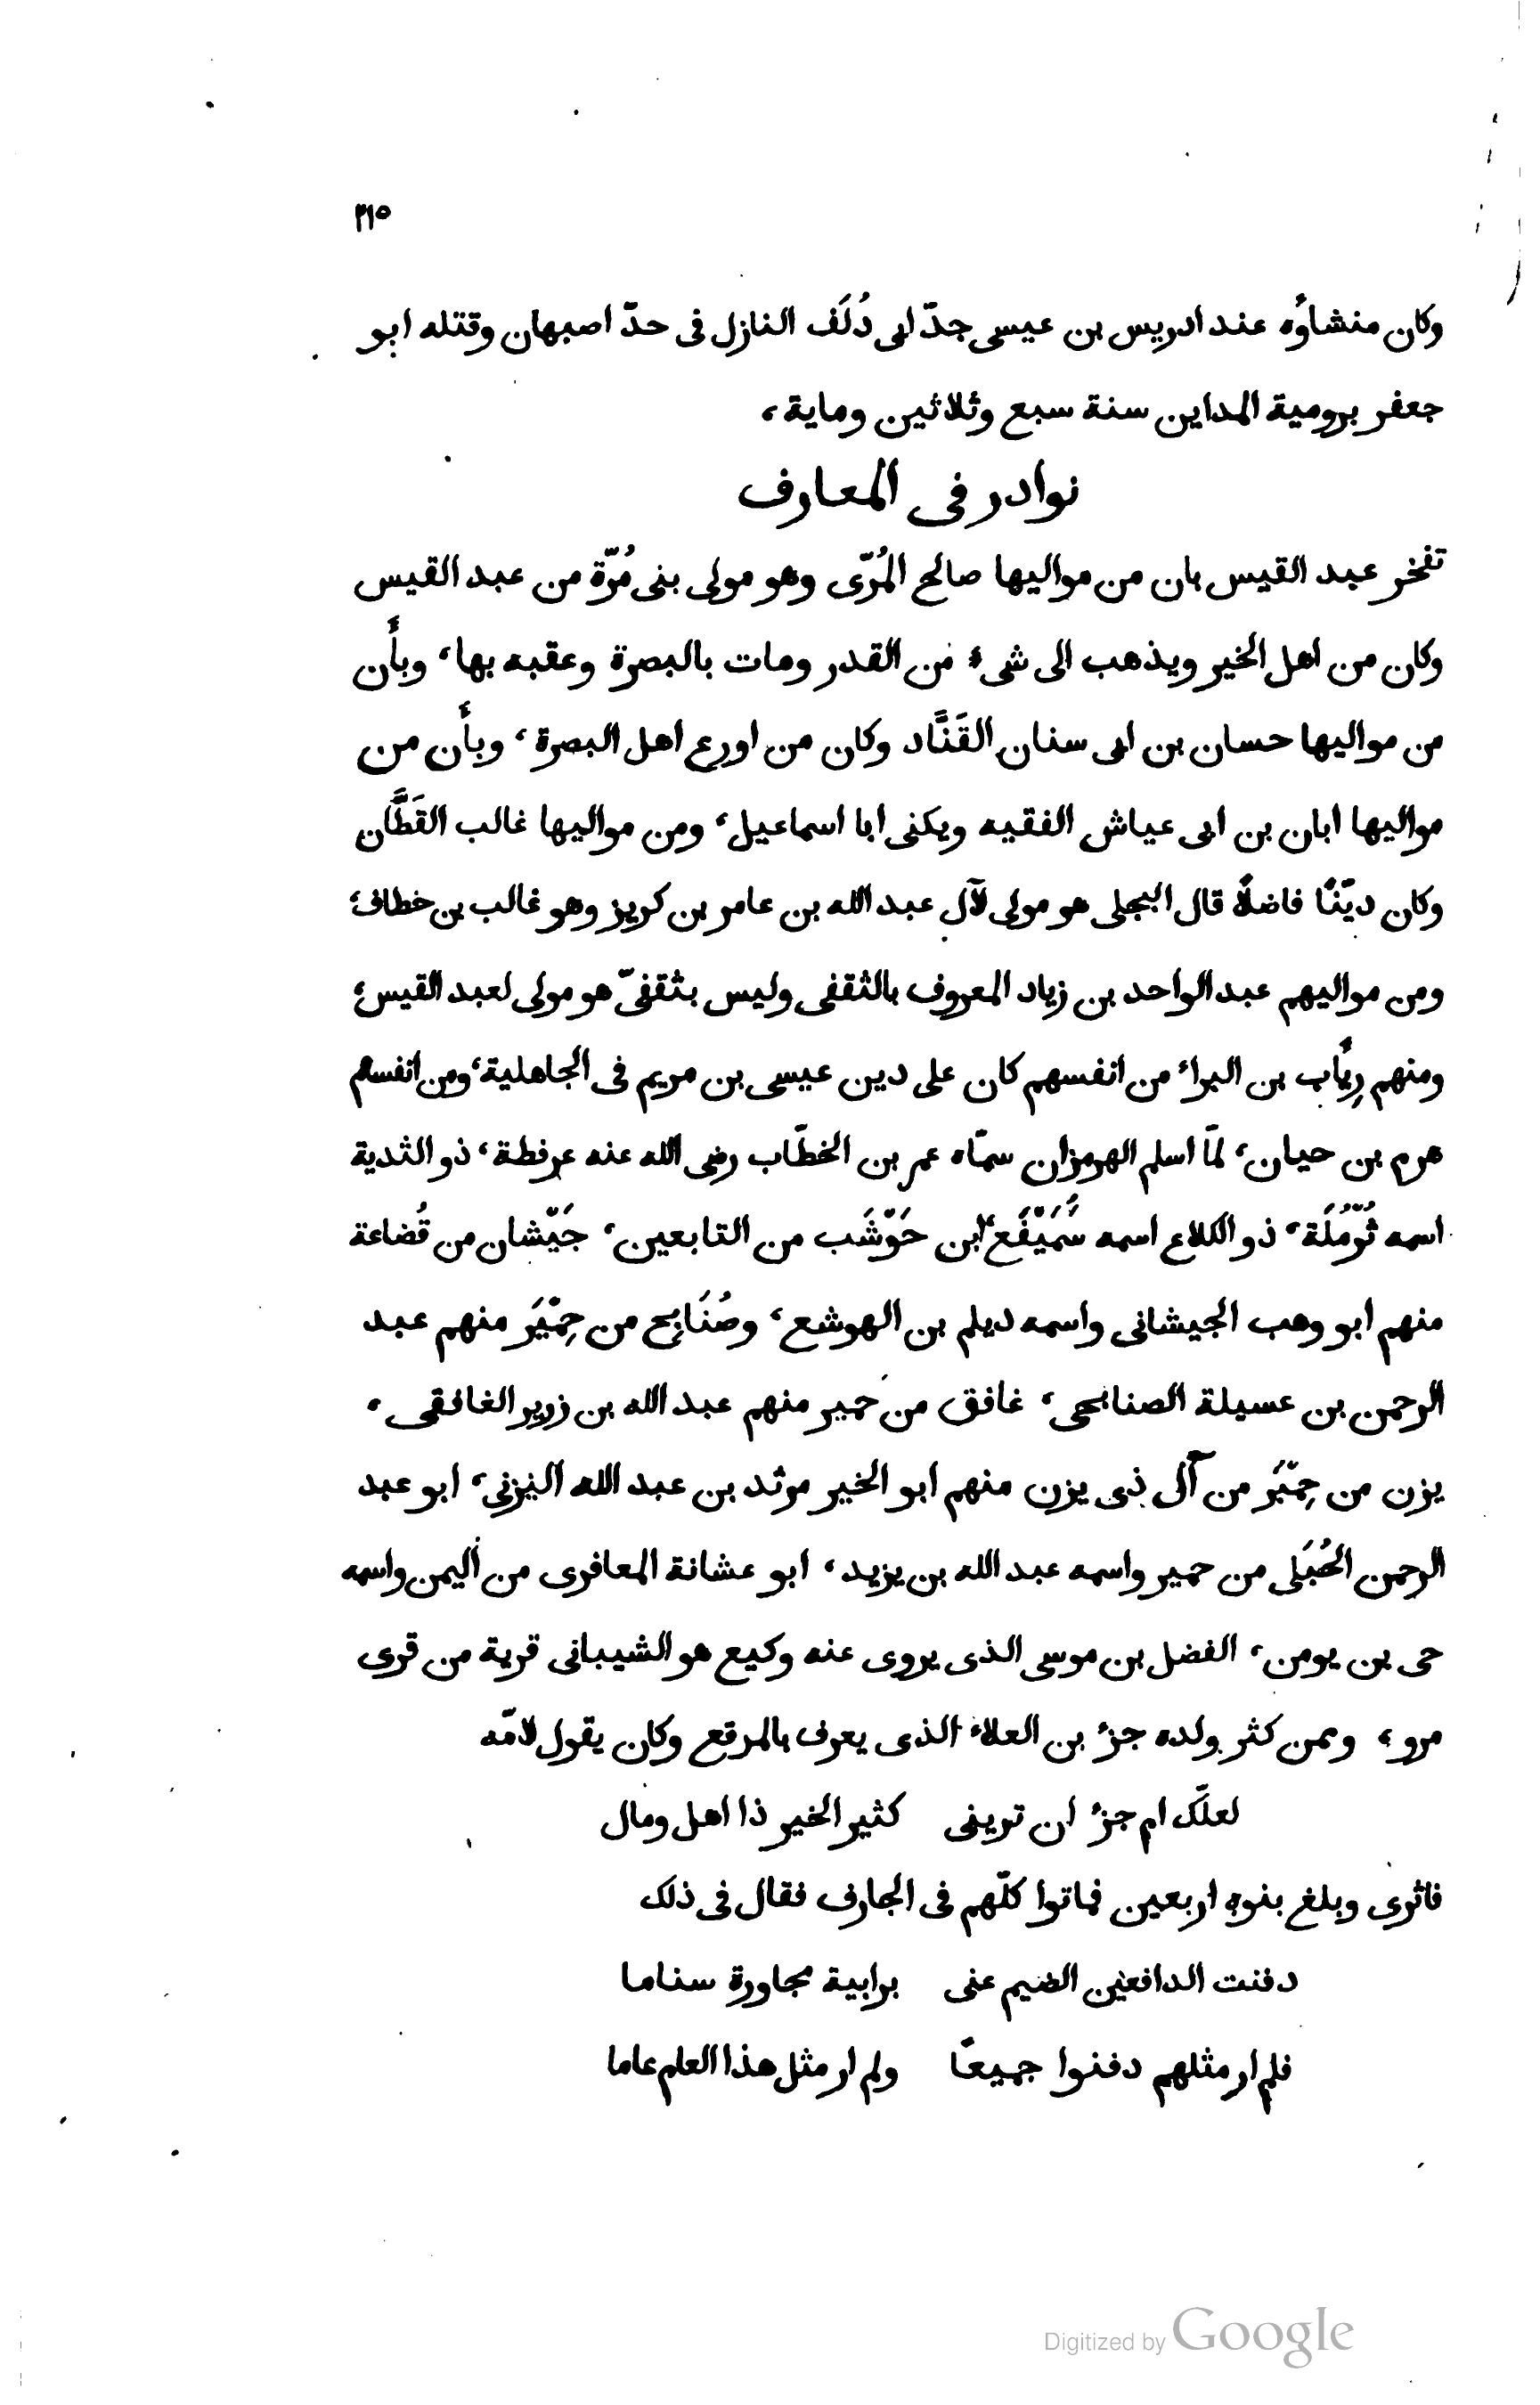 ٣١٥
وكان منشاؤه عند ادريس بن عيسى جدّ ابى دُلَف النازل فى حدّ اصبهان وقتله ابو
جعفر برومية المداين سنة سبع وثلاثين وماية،
نوادر فى المعارف
تفخر عبد القيس بان من مواليها صالح المُرّى وهو مولى بنى مُرّة من عبد القيس
وكان من اهل الخير ويذهب الى شىء من القدر ومات بالبصرة وعقبه بها، وبأن
من مواليها حسان بن ابى سنان القَنَّاد وكان من اورع اهل البصرة، وبأن من
مواليها ابان بن ابى عياش الفقيه ويكنى ابا اسماعيل، ومن مواليها غالب القَطَّان
وكان ديّنًا فاضلًا قال البجلى هو مولى لآل عبد الله بن عامر بن كريز وهو غالب بن خطاف،
ومن مواليهم عبد الواحد بن زياد المعروف بالثقفى وليس بثقفىّ هو مولى لعبد القيس،
ومنهم رِيأب بن البراء من انفسهم كان على دين عيسى بن مريم فى الجاهلية، ومن انفسهم
هرم بن حيان، لمّا اسلم الهرمزان سمّاه عمر بن الخطّاب رضى الله عنه عرفطة، ذو الثدية
اسمه ثُرْمُلَة، ذو الكلاع اسمه سُمَيْفَع ابن حَوْشَب من التابعين، جَيْشان من قُضاعة
منهم ابو وهب الجيشانى واسمه ديلم بن الهوشع، وصُنَابِح من حِمْيَر منهم عبد
الرحمن بن عسيلة الصنابحى، غافق من حمير منهم عبد الله بن زرير الغافقى،
يزن من حِمْيَر من آل ذى يزن منهم ابو الخير مرثد بن عبد الله اليزنى، ابو عبد
الرحمن الحُبَلى من حمير واسمه عبد الله بن يزيد، ابو عشانة المعافرى من اليمن واسمه
حى بن يومن، الفضل بن موسى الذى يروى عنه وكيع هو الشيبانى قرية من قرى
مرو، وممن كثر ولده جزء بن العلاء الذى يعرف بالمرقع وكان يقول لامّه
لعلّك ام جزء ان ترينى كثير الخير ذا اهل ومال
فاثرى وبلغ بنوه اربعين فماتوا كلّهم فى الجارف فقال فى ذلك
دفنت الدافعين الضيم عنى برابية مجاورة سناما
فلم ار مثلهم دفنوا جميعًا ولم ار مثل هذا العام عاما
Digitized by Google